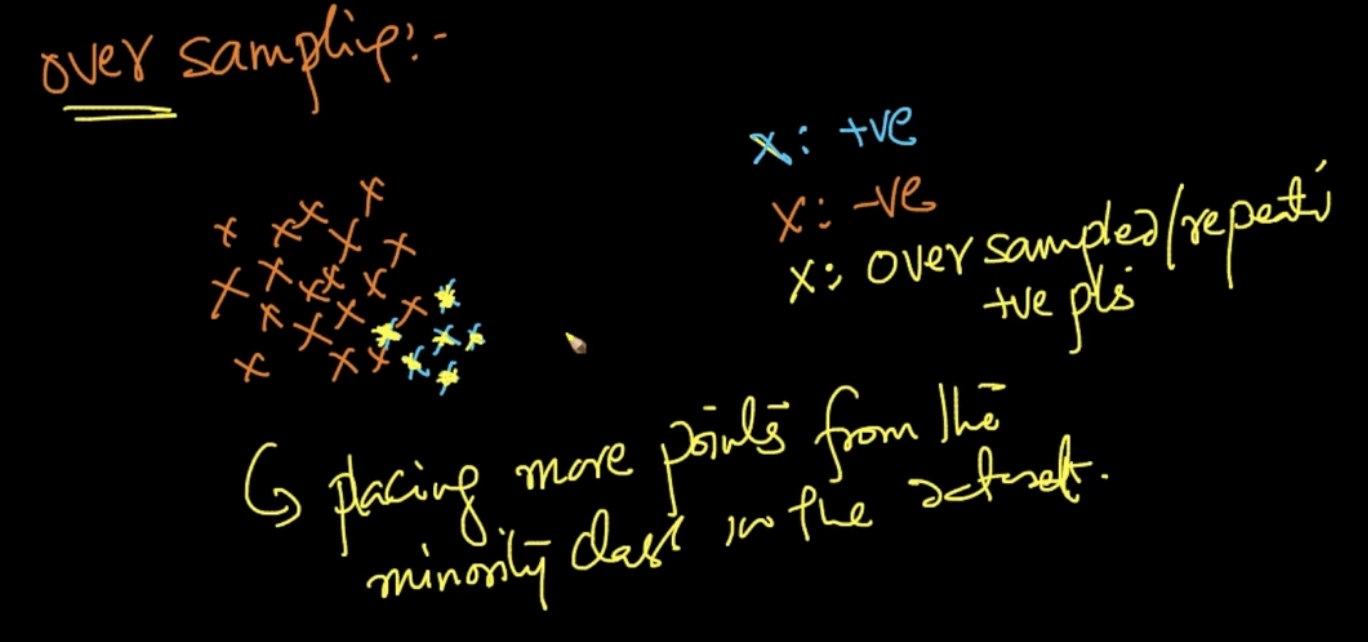 over sampling:-
x: +ve
x: -ve
x: over sampled/repeati
+ve pts
placing more points from the
minority class in the dataset.